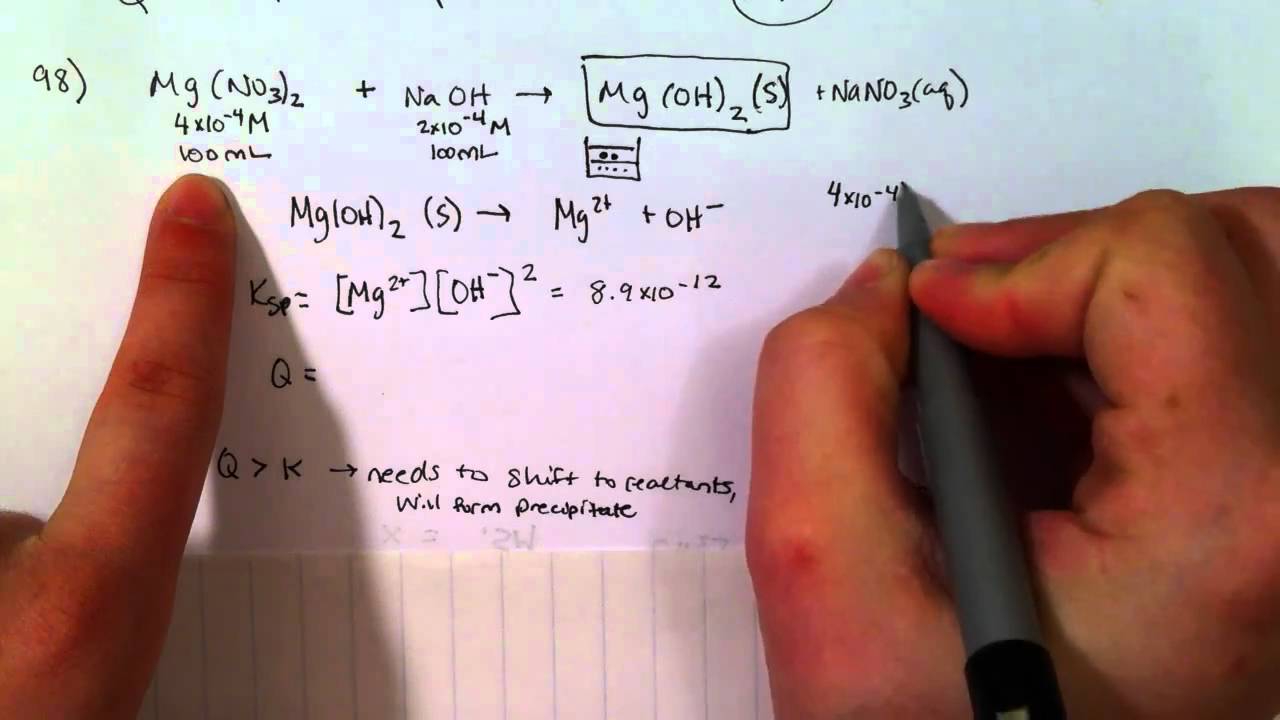 98) Mg(NO3)2 + NaOH → Mg(OH)2(s) + NaNO3(aq)
4×10-4 M 2×10-4 M
100mL 100mL
4×10-4
Mg(OH)2 (s) → Mg2+ + OH-
Ksp = [Mg2+][OH-]2 = 8.9×10-12
Q =
Q > K → needs to shift to reactants,
Will form precipitate